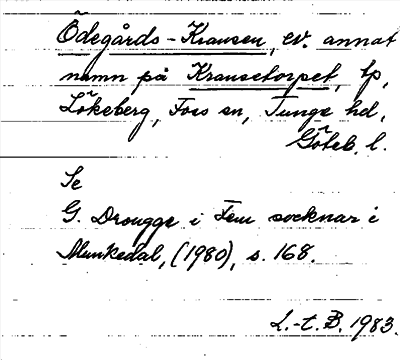 Ödegårds-Krausen, ev. annat
namn på Krausetorpet, tp,
Lökeberg, Foss sn, Tunge hd,
Göteb. l.
Se
G. Drougge i Fem socknar i
Munkedal, (1980), s. 168.
L.-t. B. 1983.